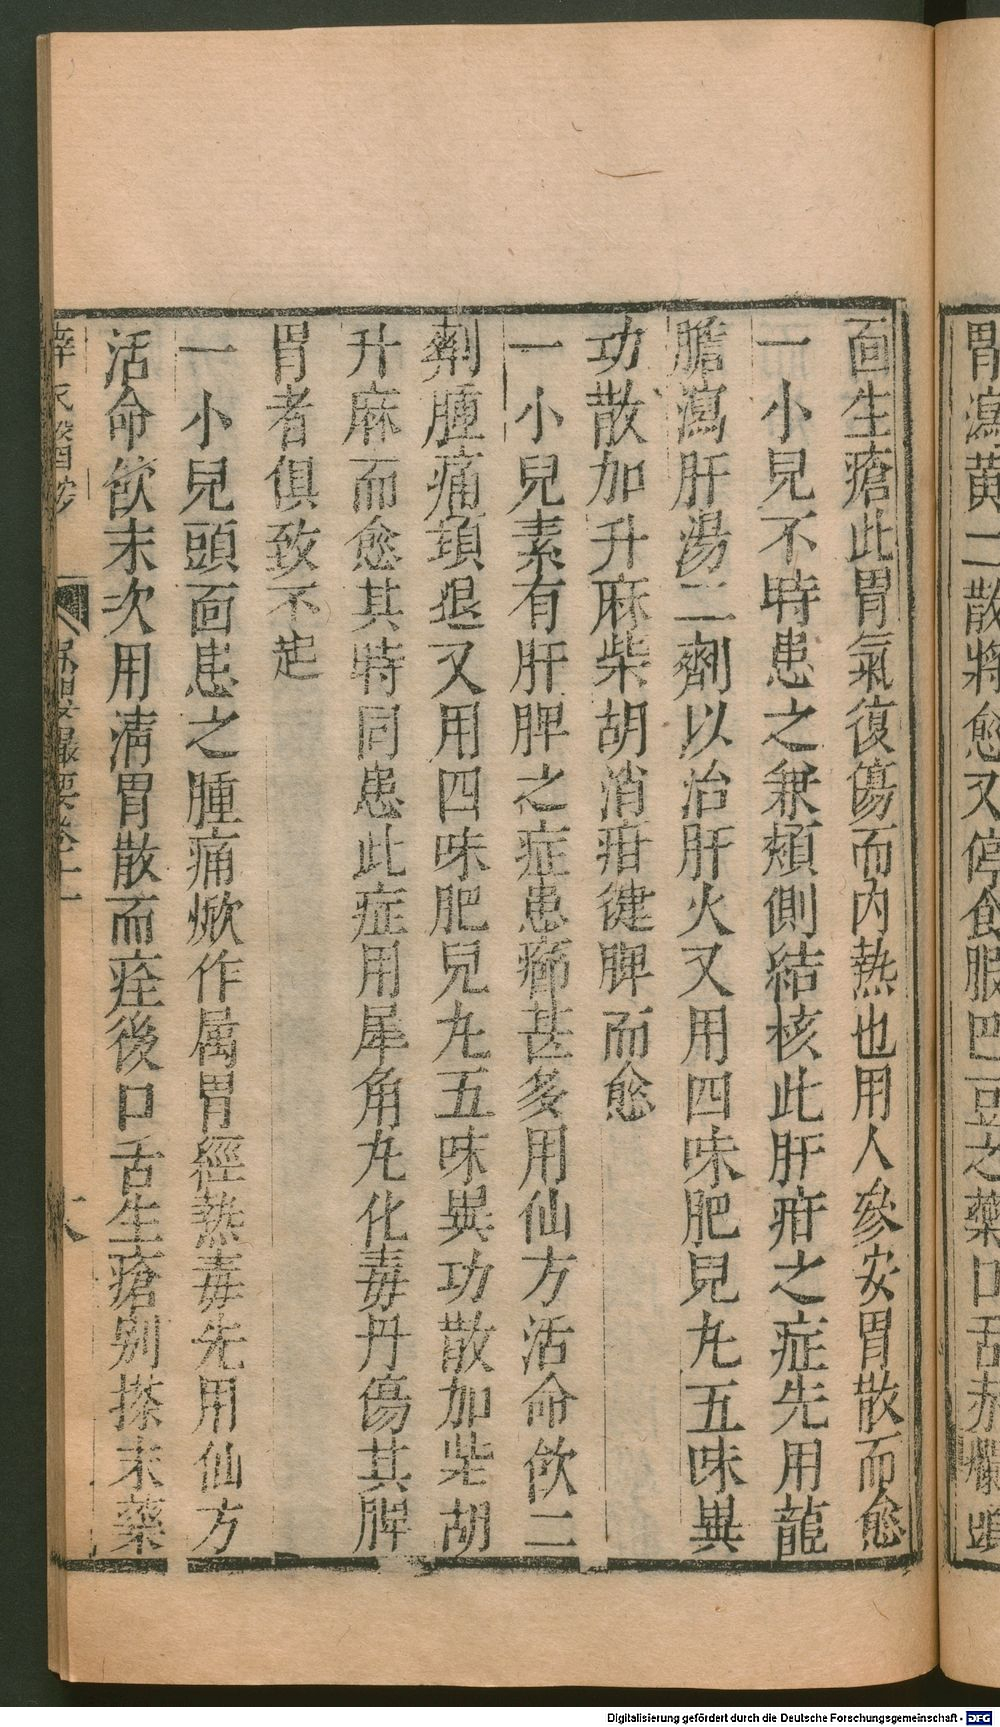 胃瀉黃二散將愈又停食服巴豆之藥口舌赤爛頭
面生瘡此胃氣復傷而內熱也用人參安胃散而愈
一小兒不時患之兼頰側結核此肝疳之症先用龍
膽瀉肝湯二劑以治肝火又用四味肥兒丸五味異
功散加升麻柴胡消疳健脾而愈
一小兒素有肝脾之症患癤甚多用仙方活命飲二
劑腫痛頓退又用四味肥兒丸五味異功散加柴胡
升麻而愈其時同患此症用犀角丸化毒丹傷其脾
胃者俱致不起
一小兒頭面患之腫痛焮作属胃經熱毒先用仙方
活命飲末次用清胃散而痊後口舌生瘡別搽末藥
薛氏醫按 保嬰撮要卷十一
Digitalisierung gefördert durch die Deutsche Forschungsgemeinschaft - DFG